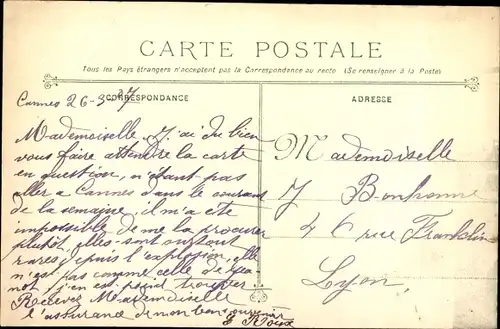 CARTE POSTALE
Tous les Pays étrangers n'acceptent pas la Correspondance au recto (Se renseigner à la Poste)
CORRESPONDANCE
ADRESSE
Cannes 26-3-
Mademoiselle, J'ai du bien
vous faire attendre la carte
en question, n'étant pas
aller a Cannes dans le courant
de la semaine, il m'a été
impossible de me la procurer
plutôt, elles sont surtout
rares depuis l'explosion, elle
n'est pas comme celle de
not j'en est point trouver
Recevez Mademoiselle
l'assurance de mon bon souvenir
E Roux
Mademoiselle
J Bonhomme
46 rue Franklin
Lyon